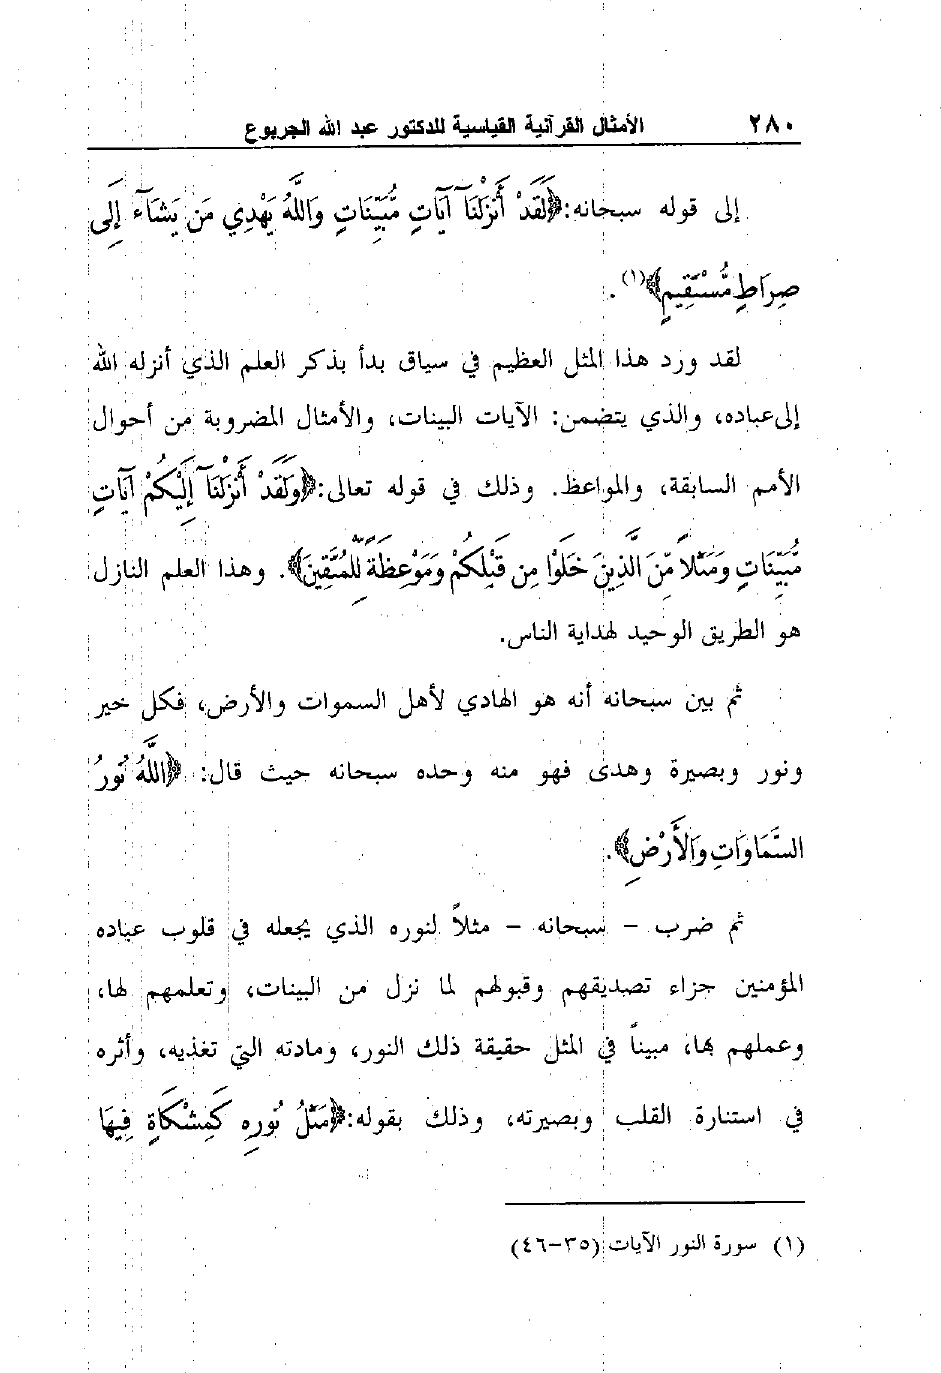 ٢٨٠ الأمثال القرآنية القياسية للدكتور عبد الله الجربوع
إلى قوله سبحانه:﴿لَقَدْ أَنزَلْنَآ آيَاتٍ مُّبَيِّنَاتٍ وَاللَّهُ يَهْدِي مَن يَشَآءُ إِلَى
صِرَاطٍ مُّسْتَقِيمٍ﴾(١).
لقد ورد هذا المثل العظيم في سياق بدأ بذكر العلم الذي أنزله الله
إلى عباده، والذي يتضمن: الآيات البينات، والأمثال المضروبة من أحوال
الأمم السابقة، والمواعظ. وذلك في قوله تعالى:﴿وَلَقَدْ أَنزَلْنَآ إِلَيْكُمْ آيَاتٍ
مُّبَيِّنَاتٍ وَمَثَلًا مِّنَ الَّذِينَ خَلَوْا مِن قَبْلِكُمْ وَمَوْعِظَةً لِّلْمُتَّقِينَ﴾. وهذا العلم النازل
هو الطريق الوحيد لهداية الناس.
ثم بين سبحانه أنه هو الهادي لأهل السموات والأرض، فكل خير
ونور وبصيرة وهدى فهو منه وحده سبحانه حيث قال: ﴿اللَّهُ نُورُ
السَّمَاوَاتِ وَالْأَرْضِ﴾.
ثم ضرب – سبحانه – مثلاً لنوره الذي يجعله في قلوب عباده
المؤمنين جزاء تصديقهم وقبولهم لما نزل من البينات، وتعلمهم لها،
وعملهم بها، مبيناً في المثل حقيقة ذلك النور، ومادته التي تغذيه، وأثره
في استنارة القلب وبصيرته، وذلك بقوله:﴿مَثَلُ نُورِهِ كَمِشْكَاةٍ فِيهَا
(١) سورة النور الآيات (٣٥-٤٦)